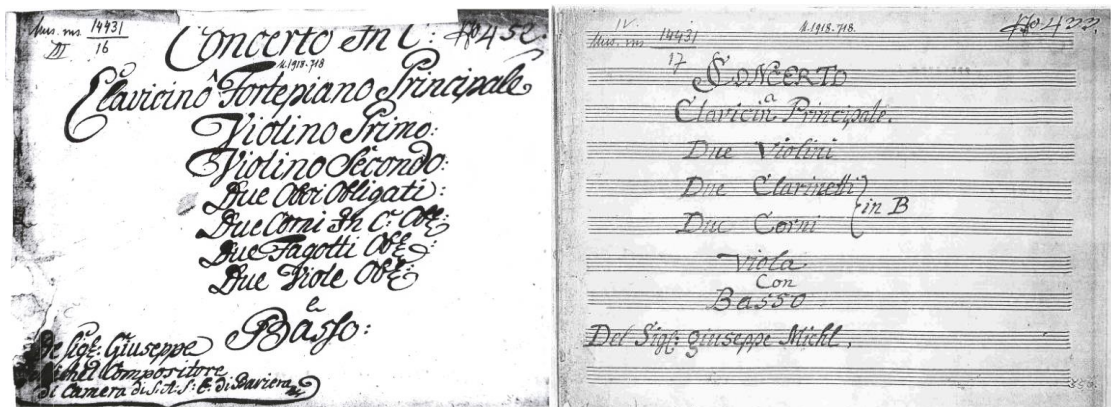 Mus. ms. 14431
III 16
Concerto In C: No 452.
M.1918.718
Clavicino ô Fortepiano Principale
Violino Primo:
Violino Secondo:
Due Oboi Obligati:
Due Corni In C: Obl:
Due Fagotti Obl:
Due Viole Obl:
e
Basso:
De Sigl: Giuseppe
Michel Compositore
di Camera di S: A: S: E: di Baviera
IV.
Mus. ms 14431
17
M.1918.718.
No 433.
CONCERTO
a
Clavicin Principale.
Due Violini
Due Clarinetti
in B
Due Corni
Viola
Con
Basso
Del Sigl: giuseppe Michl.